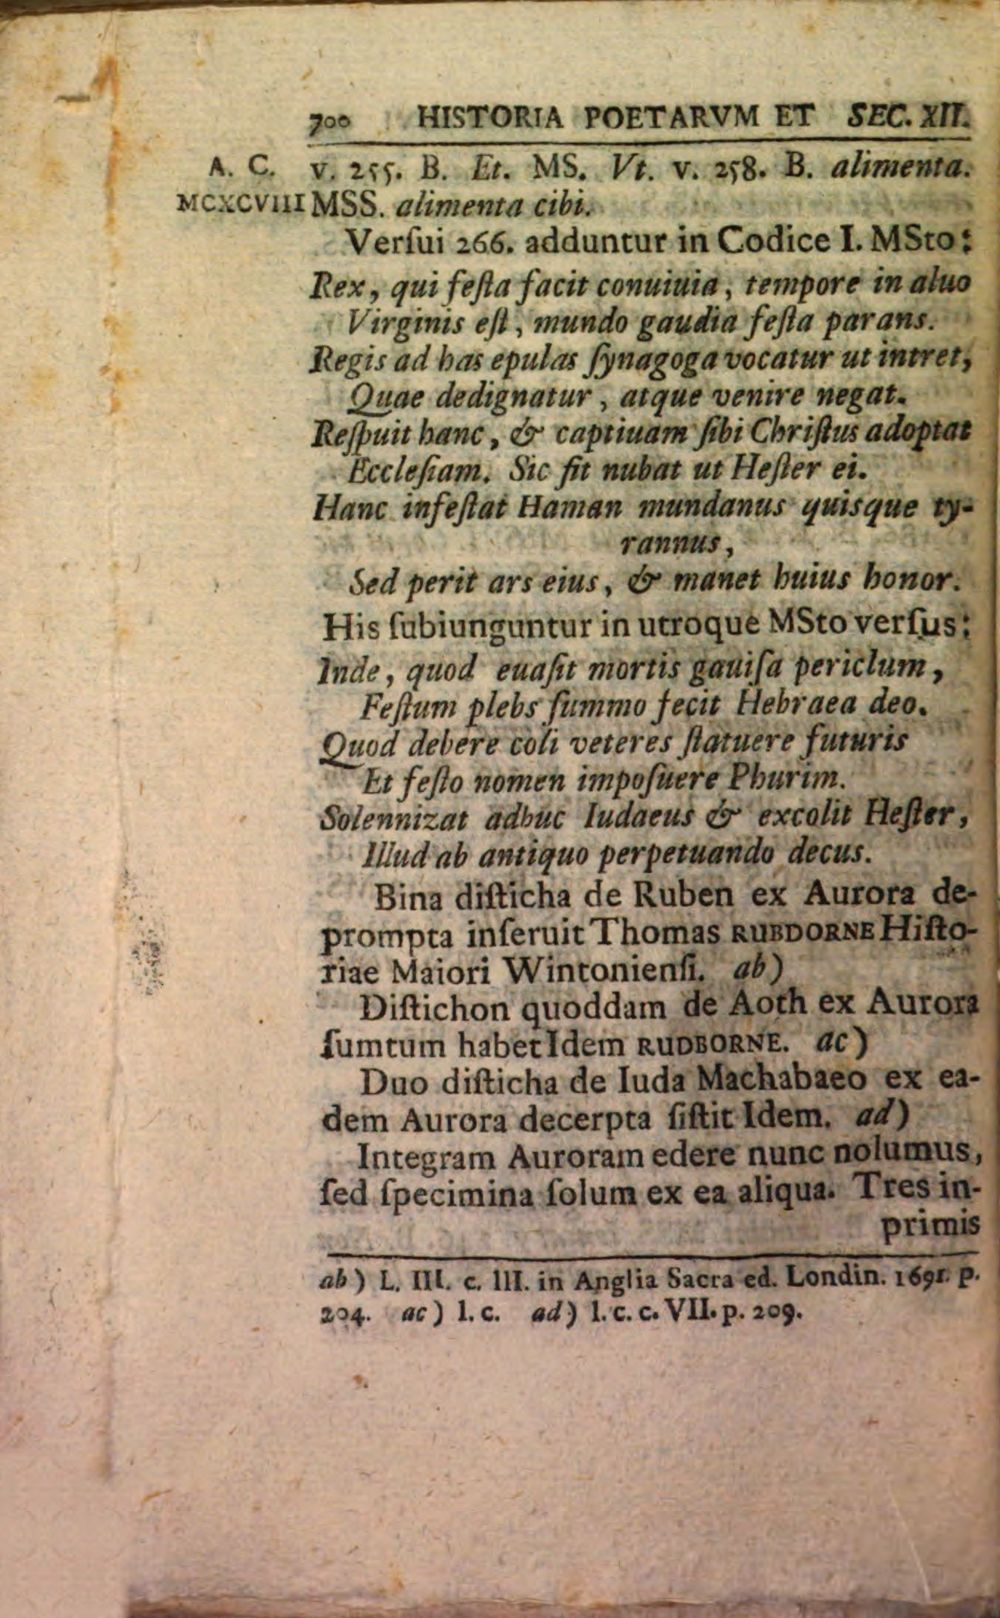 700 HISTORIA POETARVM ET SEC. XII.
A. C. v. 255. B. Et. MS. Vt. v. 258. B. alimenta.
MCXCVIII MSS. alimenta cibi.
Verſui 266. adduntur in Codice I. MSto:
Rex, qui feſta facit conuiuia, tempore in aluo
Virginis eſt, mundo gaudia feſta parans.
Regis ad has epulas ſynagoga vocatur ut intret,
Quae dedignatur, atque venire negat.
Reſpuit hanc, & captiuam ſibi Chriſtus adoptat
Eccleſiam. Sic fit nubat ut Heſter ei.
Hanc infeſtat Haman mundanus quisque ty-
rannus,
Sed perit ars eius, & manet huius honor.
His ſubiunguntur in utroque MSto verſus:
Inde, quod euaſit mortis gauiſa periclum,
Feſtum plebs ſummo fecit Hebraea deo.
Quod debere coli veteres ſtatuere futuris
Et feſto nomen impoſuere Phurim.
Solennizat adhuc Iudaeus & excolit Heſter,
Illud ab antiquo perpetuando decus.
Bina diſticha de Ruben ex Aurora de-
prompta inſeruit Thomas RUBDORNE Hiſto-
riae Maiori Wintonienſi. ab)
Diſtichon quoddam de Aoth ex Aurora
ſumtum habet Idem RUDBORNE. ac)
Duo diſticha de Iuda Machabaeo ex ea-
dem Aurora decerpta ſiſtit Idem. ad)
Integram Auroram edere nunc nolumus,
ſed ſpecimina ſolum ex ea aliqua. Tres in-
primis
ab) L. III. c. III. in Anglia Sacra ed. Londin. 1691. p.
204. ac) l. c. ad) l. c. c. VII. p. 209.